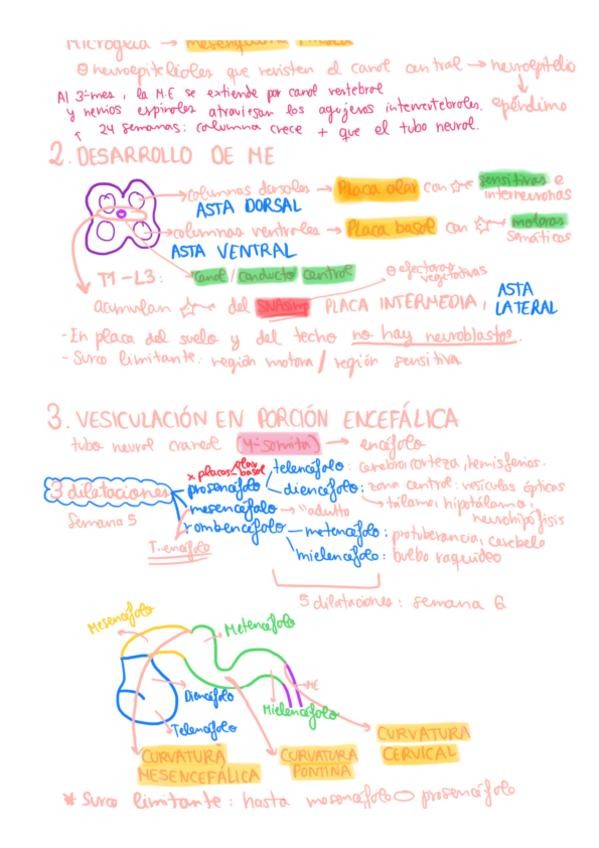 Microglia →
⊖ neuroepiteliales que revisten el canal central → neuroepitelio
Al 3er mes, la M.E se extiende por canal vertebral
y nervios espinales atraviesan los agujeros intervertebrales.
epéndimo
24 semanas: columna crece + que el tubo neural.
2. DESARROLLO DE ME
columnas dorsales → Placa alar con sensitivas e
interneuronas
ASTA DORSAL
columnas ventrales → Placa basal con motoras
somáticas
ASTA VENTRAL
T1-L3: canal / conducto central
⊖ efectoras
vegetativas
acumulan del SNAsimp PLACA INTERMEDIA, ASTA
LATERAL
- En placa del suelo y del techo no hay neuroblastos.
- Surco limitante: región motora / región sensitiva
3. VESICULACIÓN EN PORCIÓN ENCEFÁLICA
tubo neural craneal (4ª somita) → encéfalo
x placas alar
basal
telencéfalo: cerebro: corteza, hemisferios.
3 dilataciones prosencéfalo
diencéfalo: zona central: vesículas ópticas
mesencéfalo → "adulto
tálamo, hipotálamo,
neurohipófisis
Semana 5
rombencéfalo — metencéfalo: protuberancia, cerebelo
T. encéfalo
mielencéfalo: bulbo raquídeo
5 dilataciones: semana 6
Mesencéfalo
Metencéfalo
ME
Diencéfalo
Mielencéfalo
Telencéfalo
CURVATURA
MESENCEFÁLICA
CURVATURA
PONTINA
CURVATURA
CERVICAL
* Surco limitante: hasta mesencéfalo prosencéfalo